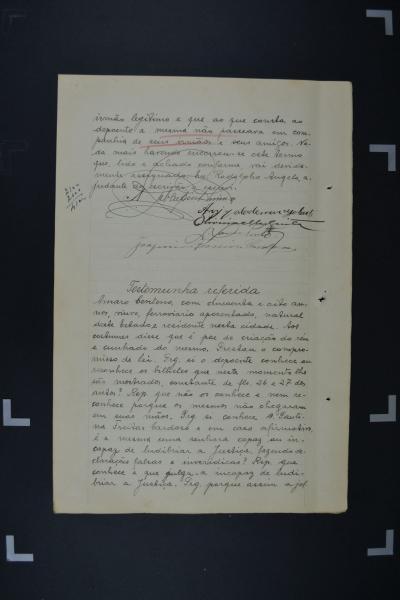 irmão legitimo e que ao que consta ao
depoente a mesma não passeava em com-
panhia de seus irmãos e seus amigos. Na-
da mais havendo encerrou-se este termo
que, lido e achado conforme vai devida-
mente assignado. Eu Rodolpho Angelo, a-
judante do escrivão o
Testemunha referida
Amaro Centeno, com cincoenta e oito an-
nos, viuvo, ferroviario aposentado, natural
deste Estado e residente nesta cidade. Aos
costumes disse que é pae de criação do réo
e cunhado do mesmo. Prestou o compro-
misso de lei. Prg. si o depoente conhece ou
reconhece os bilhetes que neste momento lhe
são mostrados, constante de fls 26 e 27 dos
autos? Rep. que não os conhece e nem re-
conhece porque os mesmos não chegaram
em suas mãos. Prg si conhece D. Pauli-
na Freitas Cardoso e em caso afirmativo,
é a mesma uma senhora capaz ou in-
capaz de ludibriar a Justiça, fazendo de-
claração falsas e inveridicas? Rep. que
conhece e que julga-a incapaz de ludi-
briar a Justiça. Prg. porque assim a jul